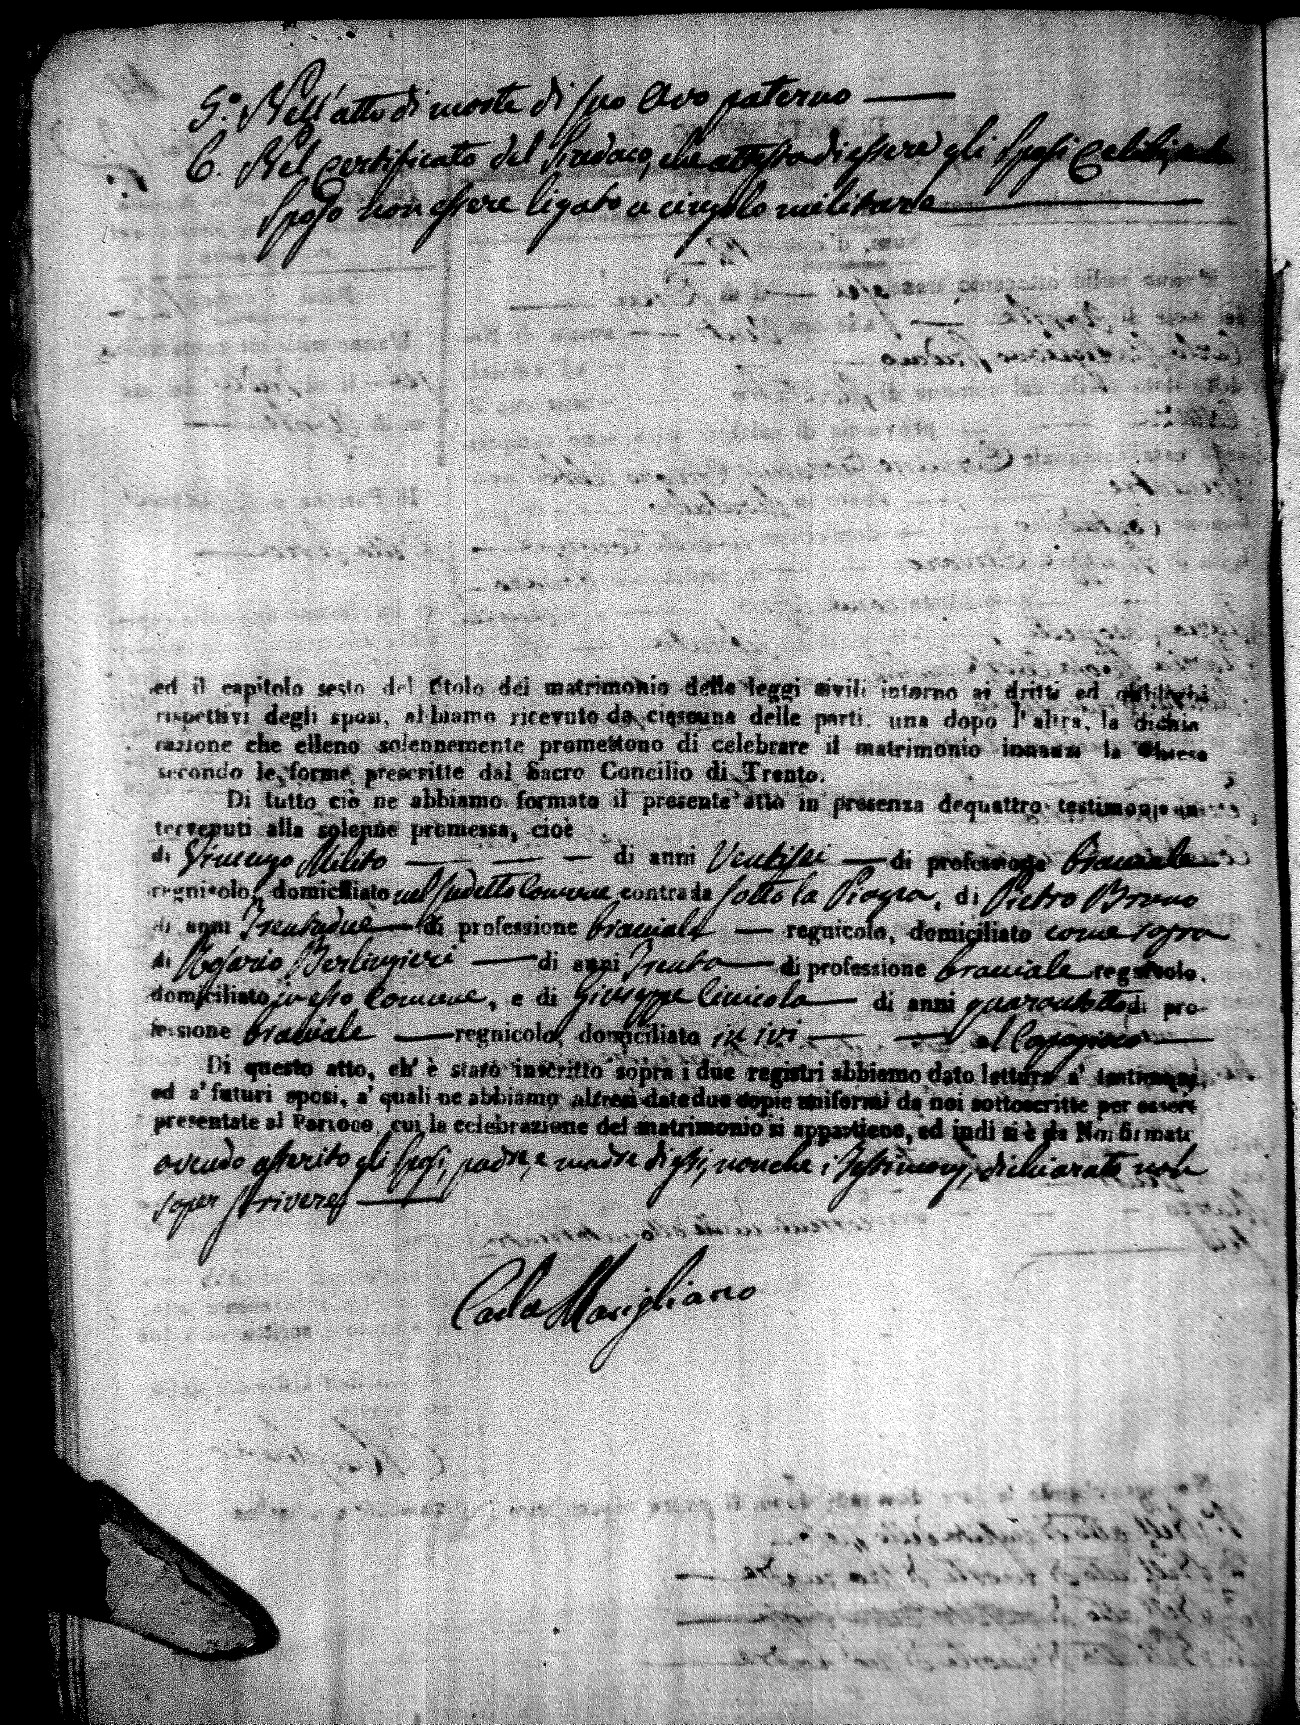 5.º Nell'atto di morte di suo Avo paterno
6. Nel certificato del Sindaco, che attesta di essere gli sposi celibi, e lo
sposo non essere ligato a cingolo militare
ed il capitolo sesto del titolo dei matrimonio delle leggi civili intorno ai dritti ed obblighi
rispettivi degli sposi, abbiamo ricevuto da ciascuna delle parti, una dopo l'altra, la dichia
razione che elleno solennemente promettono di celebrare il matrimonio innanzi la Chiesa
secondo le forme prescritte dal Sacro Concilio di Trento.
Di tutto ciò ne abbiamo formato il presente atto in presenza dequattro testimonj in
tervenuti alla solenne promessa, cioè
di Vincenzo Milito di anni Ventisei di professione bracciale
regnicolo, domiciliato nel sudetto Comune, contrada sotto la Piazza, di Pietro Bruno
di anni Trentadue di professione bracciale regnicolo, domiciliato come sopra
di Rosario Berlingieri di anni Trenta di professione bracciale regnicolo,
domiciliato in esso Comune, e di Giuseppe di anni quarantotto di pro-
fessione bracciale regnicolo, domiciliato in ivi al
Di questo atto, ch' è stato inscritto sopra i due registri abbiamo dato lettura a' testimonj,
ed a' futuri sposi, a' quali ne abbiamo altresì date due copie uniformi da noi sottoscritte per essere
presentate al Parroco, cui la celebrazione del matrimonio si appartiene, ed indi si è da Noi firmato
avendo asserito gli sposi, padre, e madre di essi, nonche i Testimonj, dichiarato non
saper scrivere
Carlo Marigliano